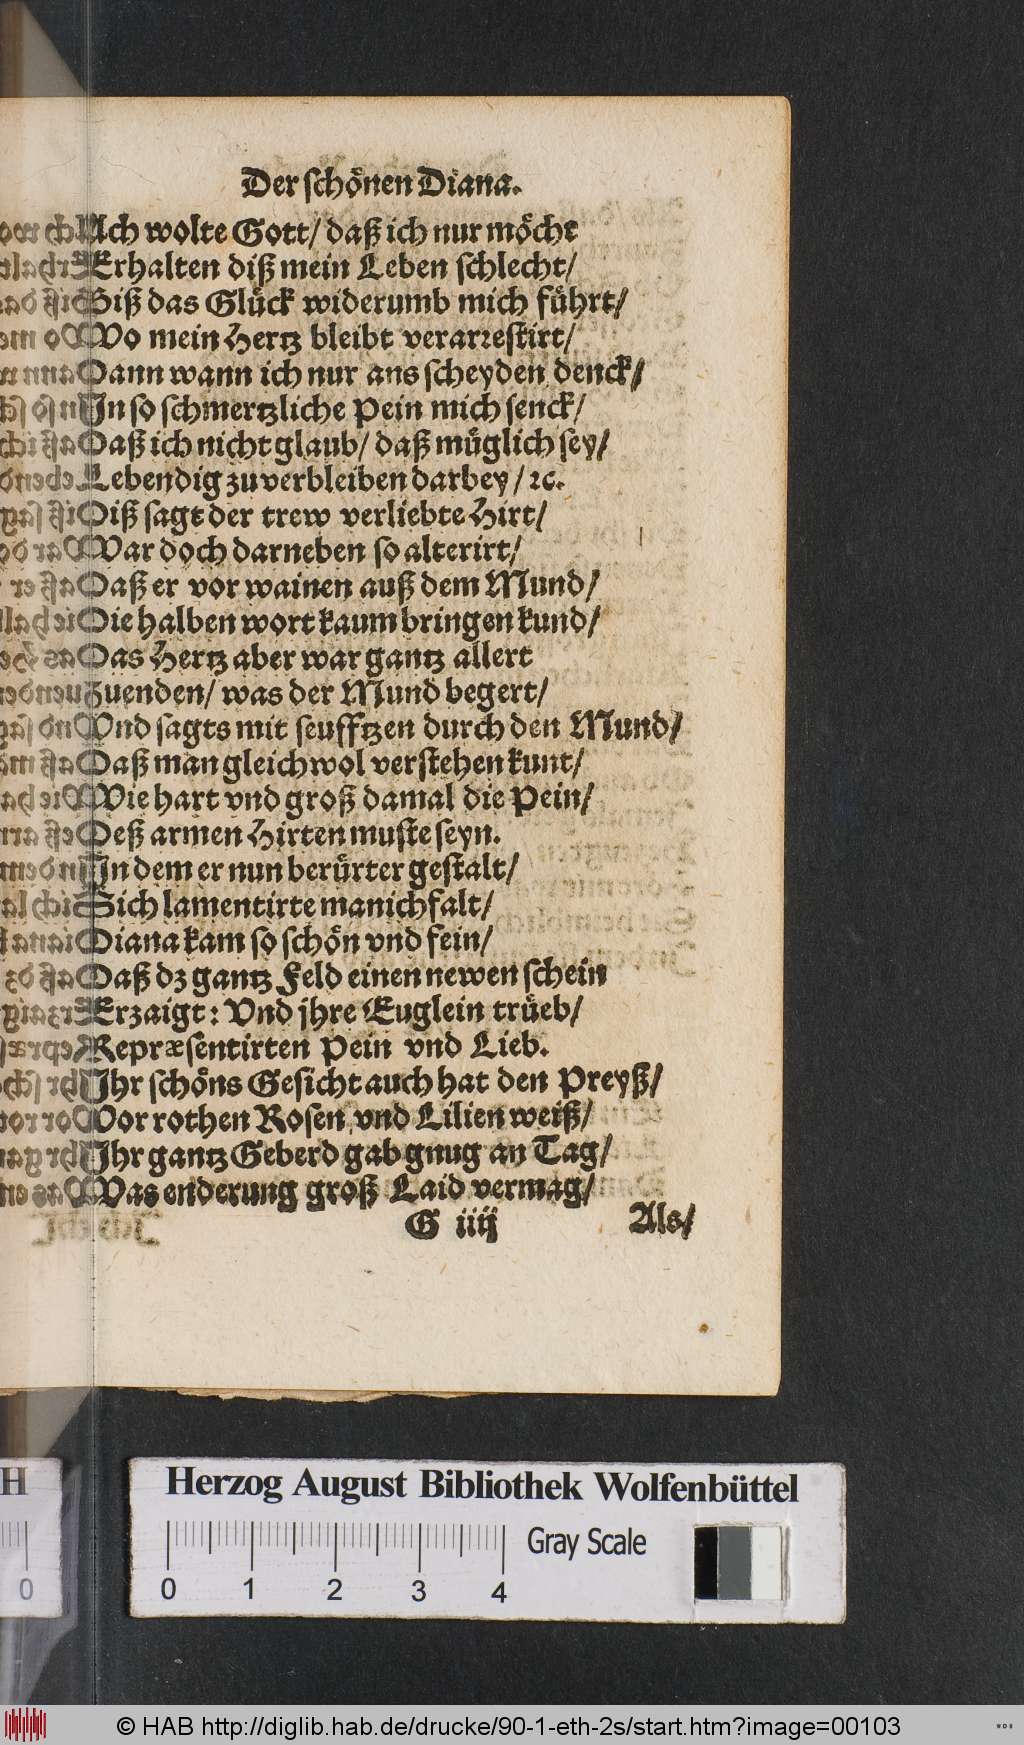 Der schönen Diana.
Ach wolte Gott/ daß ich nur möcht
Erhalten diß mein Leben schlecht/
Biß das Glück widerumb mich führt/
Wo mein Hertz bleibt verarrestirt/
Dann wann ich nur ans scheyden denck/
In so schmertzliche Pein mich senck/
Daß ich nicht glaub/ daß müglich sey/
Lebendig zu verbleiben darbey/ ꝛc.
Diß sagt der trew verliebte Hirt/
War doch darneben so alterirt/
Daß er vor wainen auß dem Mund/
Die halben wort kaum bringen kund/
Das Hertz aber war gantz allert
Zuenden/ was der Mund begert/
Vnd sagts mit seufftzen durch den Mund/
Daß man gleichwol verstehen kunt/
Wie hart vnd groß damal die Pein/
Deß armen Hirten muste seyn.
In dem er nun berürter gestalt/
Sich lamentirte manichfalt/
Diana kam so schön vnd fein/
Daß dz gantz Feld einen newen schein
Erzaigt: Vnd jhre Euglein trüeb/
Repræsentirten Pein vnd Lieb.
Ihr schöns Gesicht auch hat den Preyß/
Vor rothen Rosen vnd Lilien weiß/
Ihr gantz Geberd gab gnug an Tag/
Was enderung groß Laid vermag/
G iiij Als/
H
0
Herzog August Bibliothek Wolfenbüttel
0 1 2 3 4
Gray Scale
© HAB http://diglib.hab.de/drucke/90-1-eth-2s/start.htm?image=00103